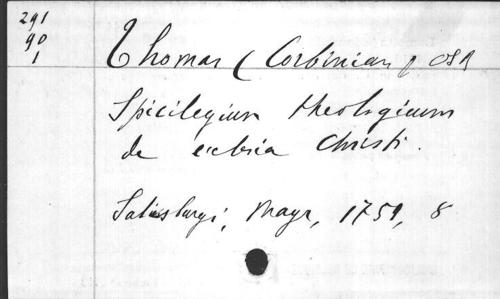 291
90
1
Thomas (Corbinian) OSA
Spicilegium theologicum
de ecclesia Christi.
Salisburgi, Mayr, 1759, 8